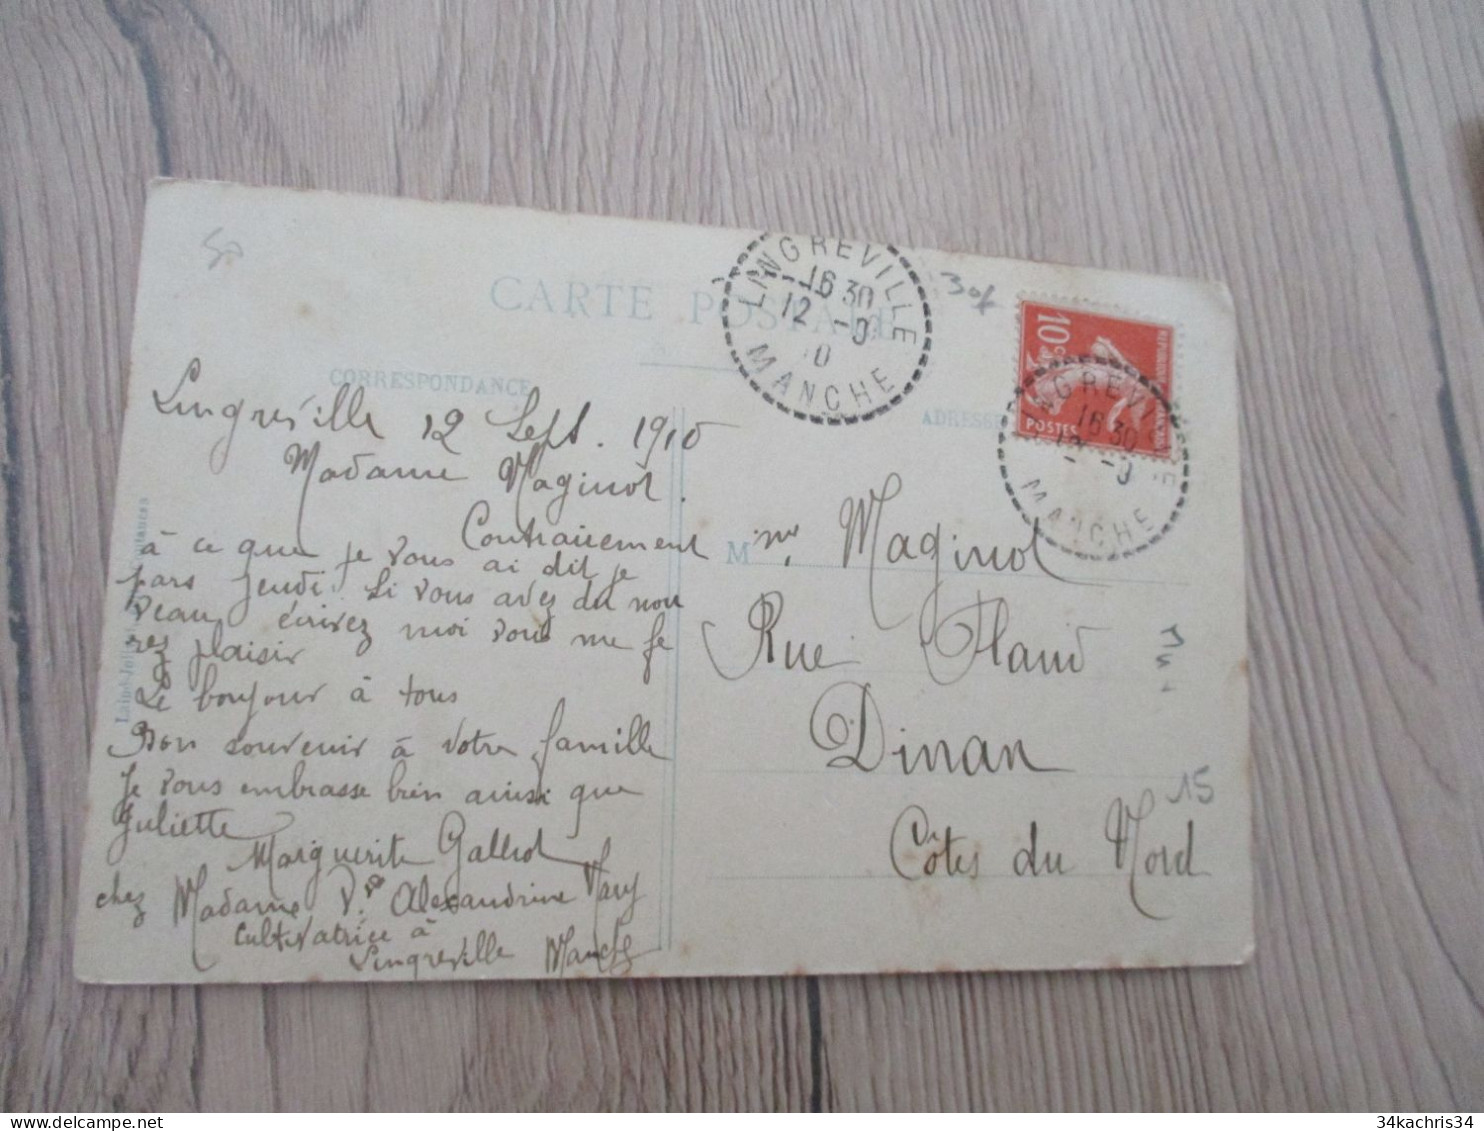 50
CARTE POSTALE
LINGREVILLE
16 30
12 -9
10
MANCHE
30f
10c
POSTES
LINGREVILLE
16 30
12 -9
MANCHE
CORRESPONDANCE
ADRESSE
Lingreville 12 Sept. 1910
Madame Maginot.
Contrairement
à ce que je vous ai dit je
pars jeudi Si vous avez du nou
veau, écrivez moi vous me fe
rez plaisir
Le bonjour à tous
Bon souvenir à votre famille
Je vous embrasse bien ainsi que
Juliette
Marguerite
chez Madame Vve Alexandrine
Cultivatrice à
Lingreville Manche
M me Maginot
Rue
Dinan
Côtes du Nord
15
34kachris34